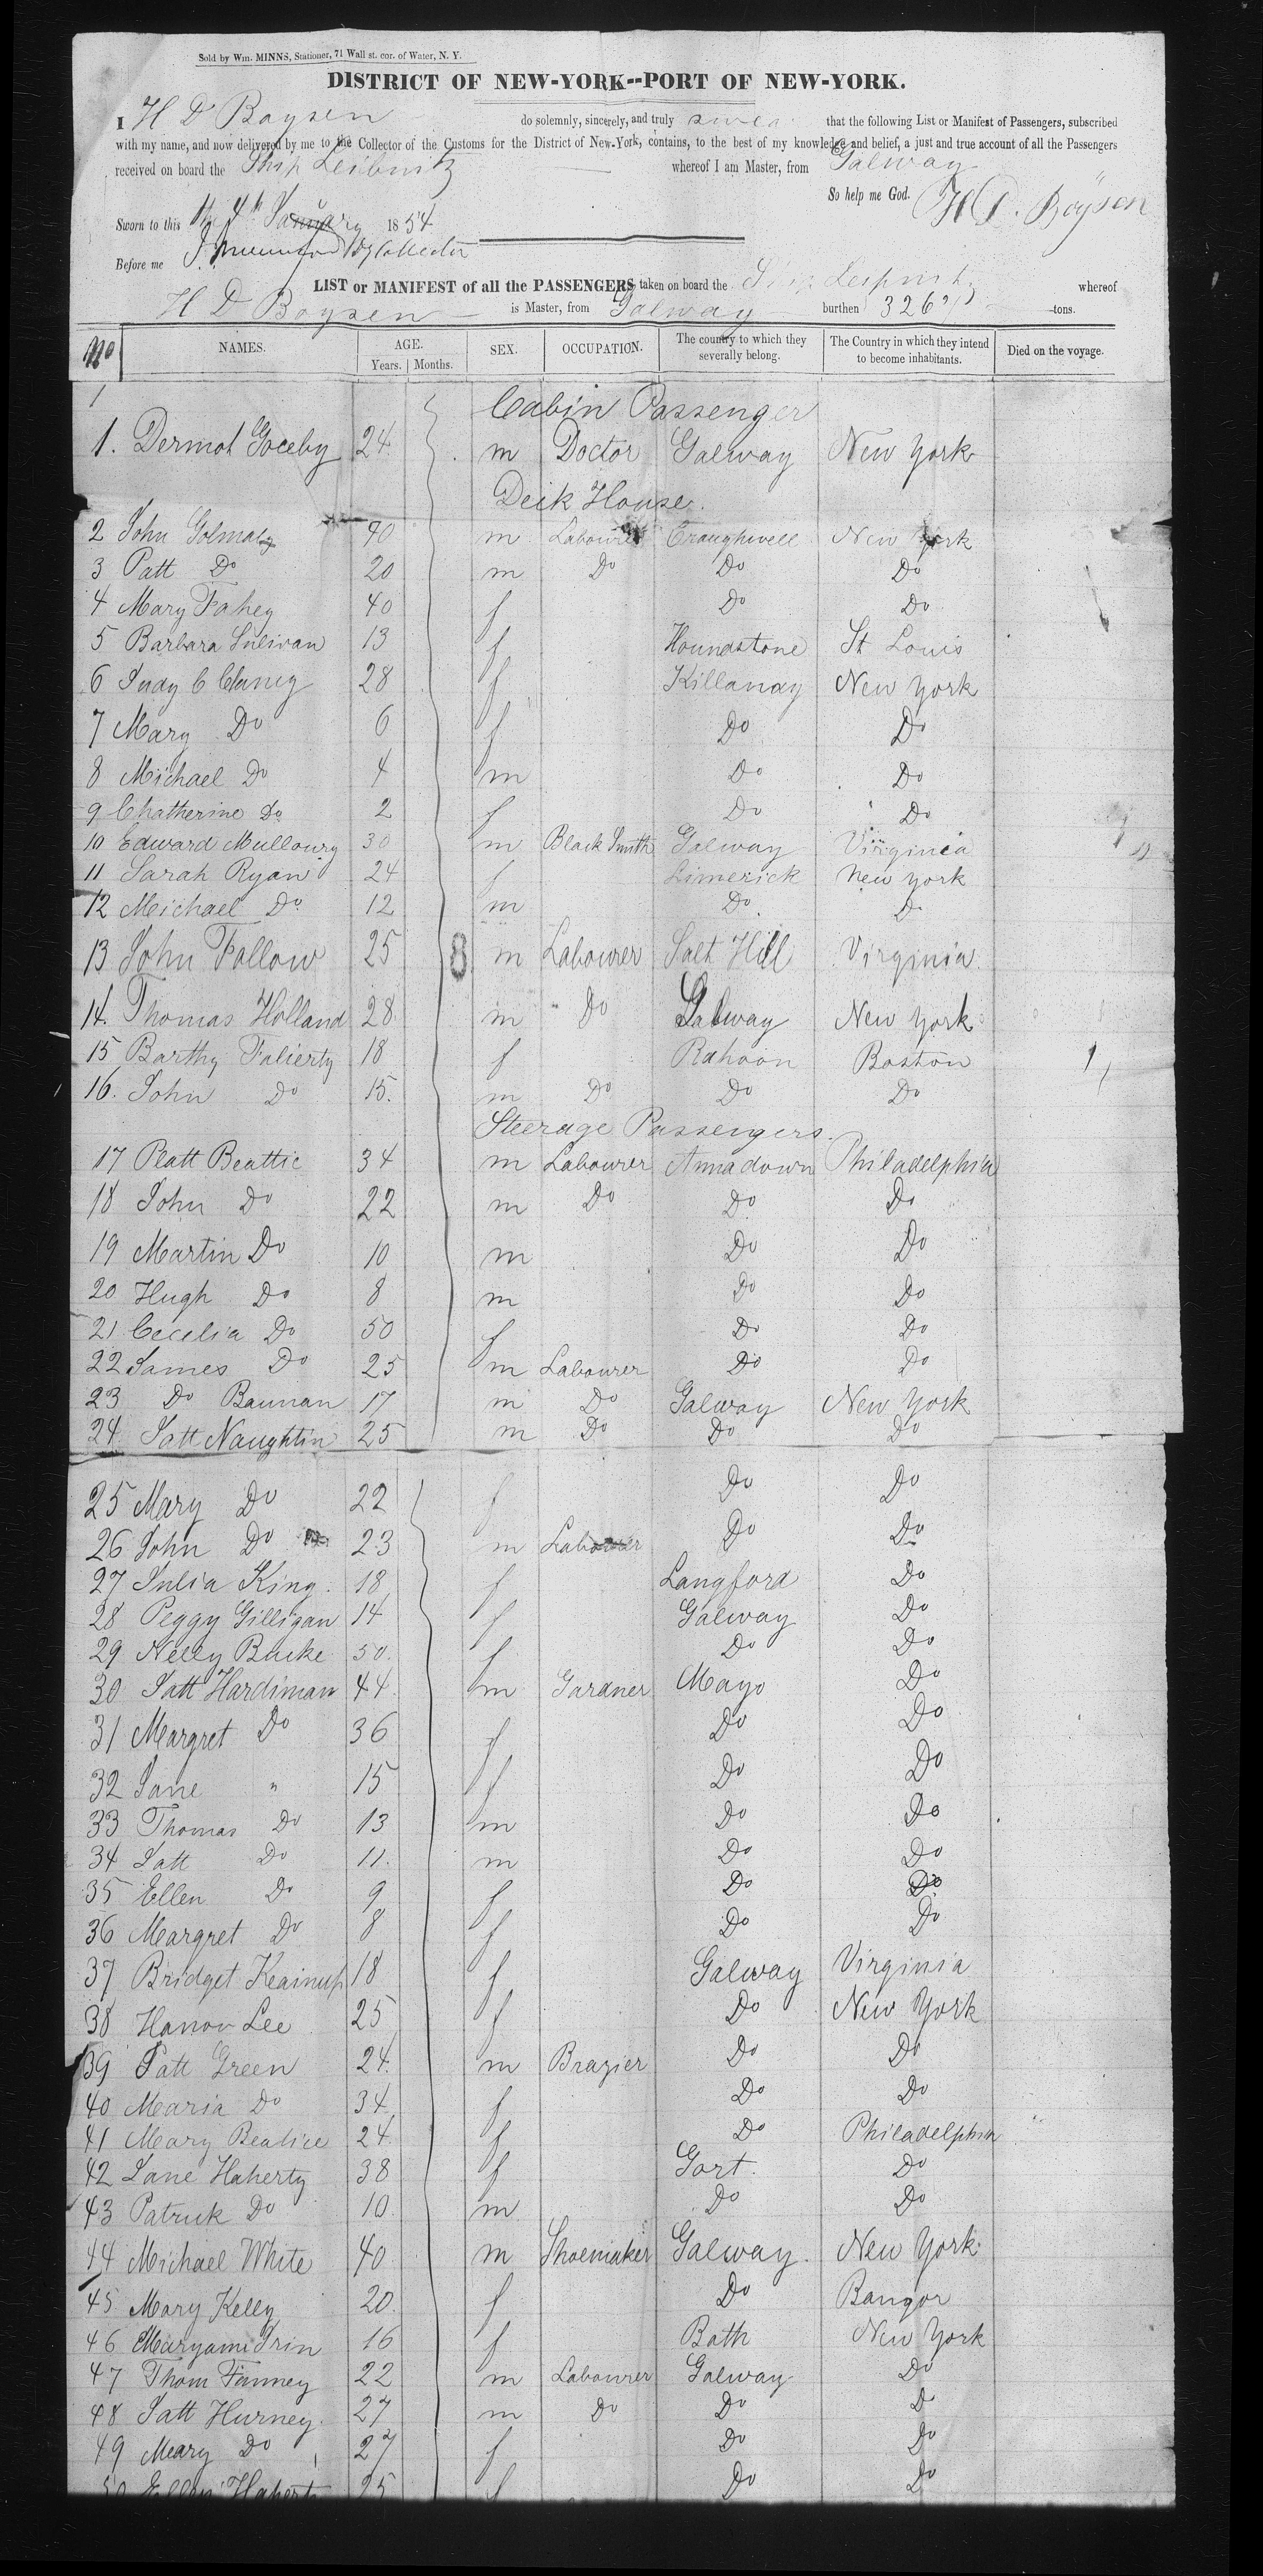 Sold by Wm. MINNS, Stationer, 71 Wall st. cor. of Water, N. Y.
DISTRICT OF NEW-YORK--PORT OF NEW-YORK.
I H D Boysen do solemnly, sincerely, and truly swear that the following List or Manifest of Passengers, subscribed
with my name, and now delivered by me to the Collector of the Customs for the District of New-York, contains, to the best of my knowledge and belief, a just and true account of all the Passengers
received on board the Ship Leibnitz whereof I am Master, from Galway
So help me God. H D. Boysen
Sworn to this the 4th January 1854
Before me Dy Collector
LIST or MANIFEST of all the PASSENGERS taken on board the Ship whereof
H D Boysen is Master, from Galway burthen 326 tons.
No NAMES. AGE. Years. Months. SEX. OCCUPATION. The country to which they severally belong. The Country in which they intend to become inhabitants. Died on the voyage.
1 Cabin Passenger
1. Dermot 24 m Doctor Galway New York
Deck House.
2 John 40 m Labourer Craughwell New York
3 Patt Do 20 m Do Do Do
4 Mary Fahey 40 f Do Do
5 Barbara Sulivan 13 f Houndstone St Louis
6 Judy 28 f Killanay New York
7 Mary Do 6 f Do Do
8 Michael Do 4 m Do Do
9 Chatherine Do 2 f Do Do
10 Edward Mullowry 30 m Black Smith Galway Virginia
11 Sarah Ryan 24 f Limerick New york
12 Michael Do 12 m Do D
13 John Fallow 25 8 m Labourer Salt Hill Virginia
14. Thomas Holland 28 m " Do Galway New York
15 Barthy Falierty 18 f Rahoon Boston
16. John Do 15. m Do Do Do
Steerage Passengers.
17 Platt Beattie 34 m Labourer Annadown Philadelphia
18 John Do 22 m Do Do Do
19 Martin Do 10 m Do Do
20 Hugh Do 8 m Do Do
21 Cecelia Do 50 f Do Do
22 James Do 25 m Labourer Do Do
23 Do Bannan 17 m Do Galway New York
24 Patt Naughtin 25 m Do Do Do
25 Mary Do 22 f Do Do
26 John Do 23 m Labourer Do Do
27 Julia King. 18 f Langford Do
28 Peggy Gilligan 14 f Galway Do
29 Nelly Burke 50. f Do Do
30 Patt Hardiman 44 m Gardner Mayo Do
31 Margret Do 36 f Do Do
32 Jane " 15 f Do Do
33 Thomas Do 13 m Do Do
34 Patt Do 11. m Do Do
35 Ellen Do 9 f Do Do
36 Margret Do 8 f Do Do
37 Bridget 18 f Galway Virginia
38 Hanor Lee 25 f Do New York
39 Patt Green 24. m Brazier Do Do
40 Maria Do 34 f Do Do
41 Mary Beatice 24 f Do Philadelphia
42 Jane Haherty 38 f Gort. Do
43 Patrick Do 10 m Do Do
44 Michael White 40 m Shoemaker Galway. New York
45 Mary Kelly 20. f Do Bangor
46 16 f Bath New York
47 Thom Finney 22 m Labourer Galway Do
48 Patt Hurney. 27 m Do Do D
49 Mary Do 27 f Do Do
50 Ellen Hahert 25 f Do Do